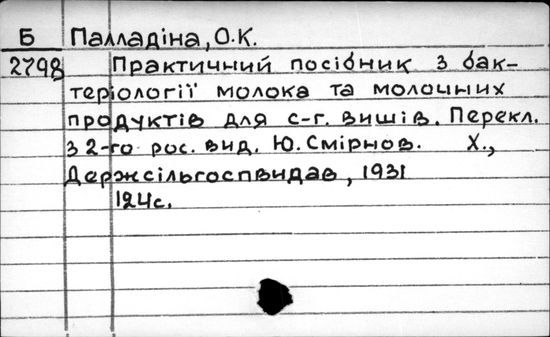 Б Палладіна, О.К.
2798 Практичний посібник з бак-
теріології молока та молочних
продуктів для с-г. вишів. Перекл.
з 2-го рос. вид. Ю. Смірнов. Х.,
Держсільгоспвидав, 1931
124с.